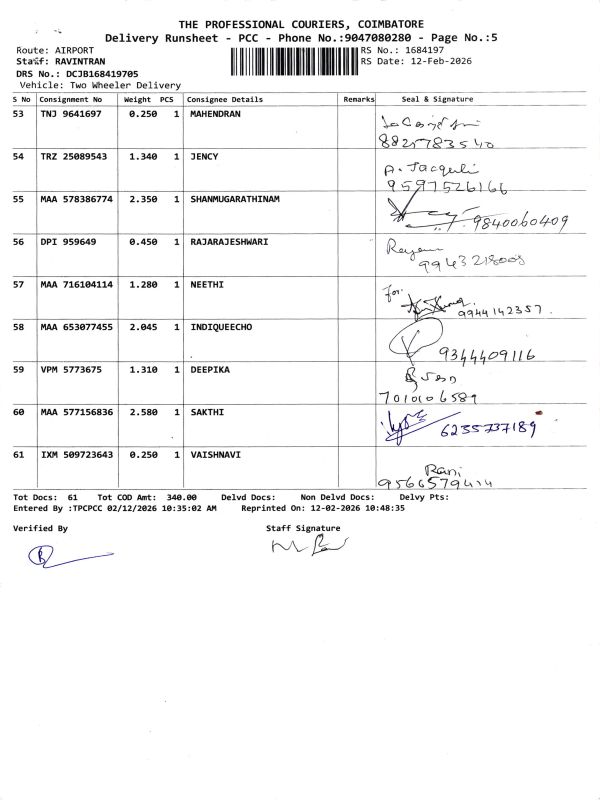 THE PROFESSIONAL COURIERS, COIMBATORE
Delivery Runsheet - PCC - Phone No.:9047080280 - Page No.:5
Route: AIRPORT RS No.: 1684197
Staff: RAVINTRAN RS Date: 12-Feb-2026
DRS No.: DCJB168419705
Vehicle: Two Wheeler Delivery
S No Consignment No Weight PCS Consignee Details Remarks Seal & Signature
53 TNJ 9641697 0.250 1 MAHENDRAN
8825783540
54 TRZ 25089543 1.340 1 JENCY A. Jacquli
9597526166
55 MAA 578386774 2.350 1 SHANMUGARATHINAM
9840060409
56 DPI 959649 0.450 1 RAJARAJESHWARI
9943218008
57 MAA 716104114 1.280 1 NEETHI For.
9944142357.
58 MAA 653077455 2.045 1 INDIQUEECHO
9344409116
59 VPM 5773675 1.310 1 DEEPIKA
7010106589
60 MAA 577156836 2.580 1 SAKTHI
6235737189
61 IXM 509723643 0.250 1 VAISHNAVI Rani
9566579414
Tot Docs: 61 Tot COD Amt: 340.00 Delvd Docs: Non Delvd Docs: Delvy Pts:
Entered By :TPCPCC 02/12/2026 10:35:02 AM Reprinted On: 12-02-2026 10:48:35
Verified By Staff Signature